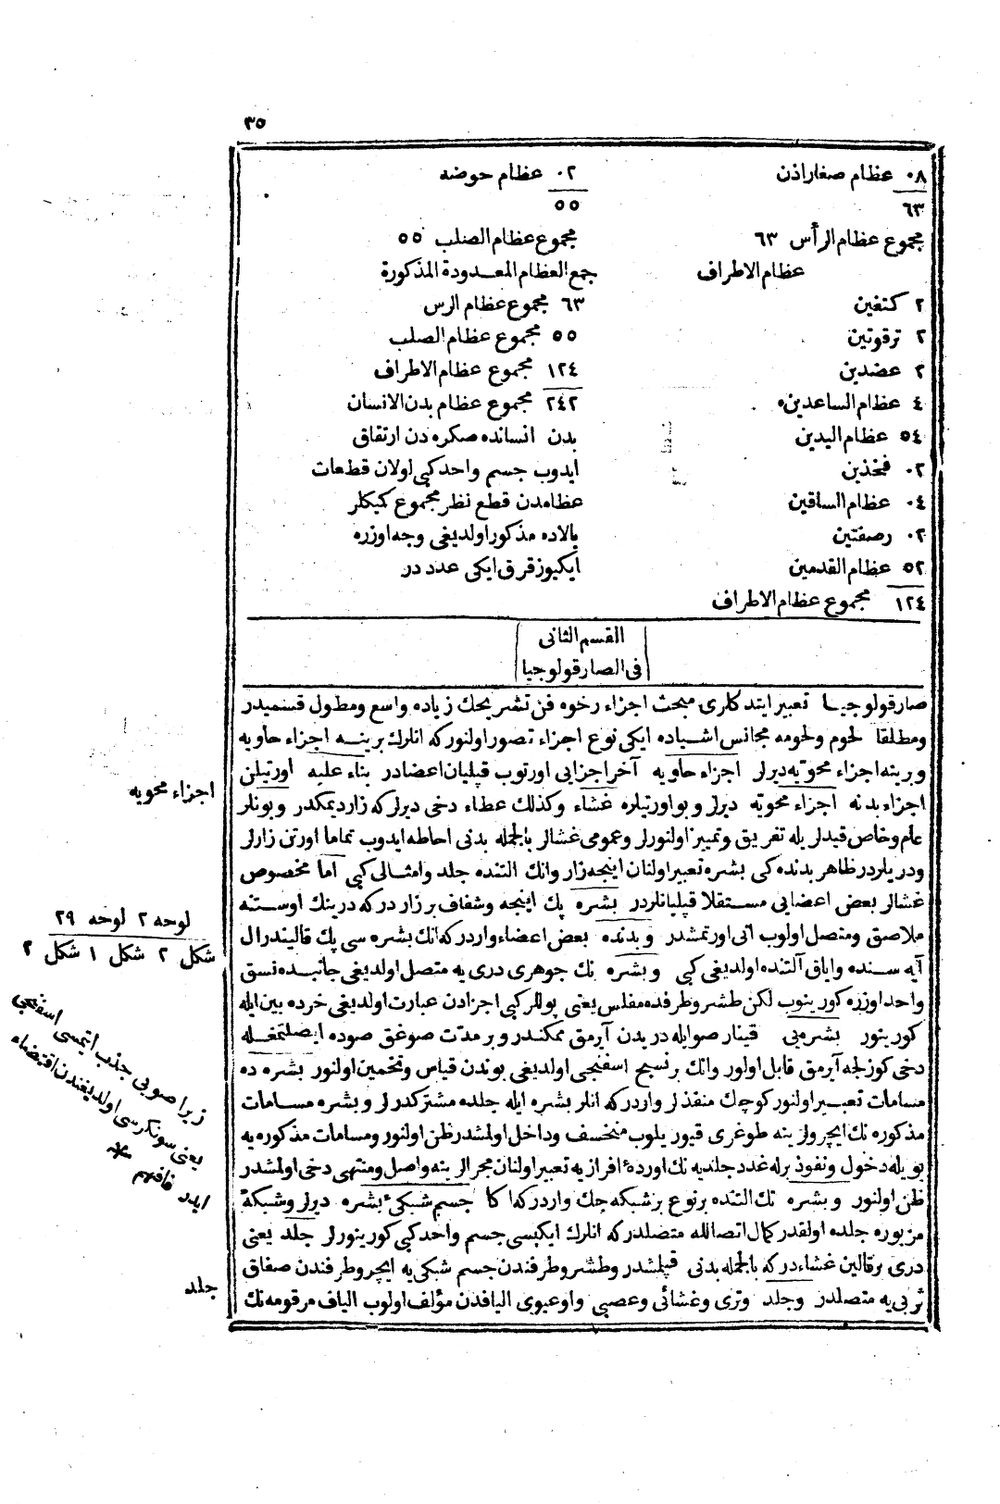 ٣٥
٠٨ عظام صغار اذن
٦٣
مجموع عظام الرأس ٦٣
عظام الاطراف
٢ كتفين
٢ ترقوتين
٢ عضدين
٤ عظام الساعدين
٥٤ عظام اليدين
٠٢ فخذين
٠٤ عظام الساقين
٠٢ رصفتين
٥٢ عظام القدمين
١٢٤ مجموع عظام الاطراف
٠٢ عظام حوضه
٥٥
مجموع عظام الصلب ٥٥
جمع العظام المعدودة المذكورة
٦٣ مجموع عظام الرس
٥٥ مجموع عظام الصلب
١٢٤ مجموع عظام الاطراف
٢٤٢ مجموع عظام بدن الانسان
بدن انسانده صكره دن ارتفاق
ايدوب جسم واحد كبى اولان قطعات
عظامدن قطع نظر مجموع كميكلر
بالاده مذكور اولديغى وجه اوزره
ايكيوز قرق ايكى عدد در
القسم الثانى
فى الصارقولوجيا
صارقولوجيا تعبير ايتدكلرى مبحث اجزاء رخوه فن تشريحك زياده واسع ومطول قسميدر
ومطلقا لحوم ولحومه مجانس اشياده ايكى نوع اجزاء تصور اولنور كه انلرك برينه اجزاء حاويه
وبرينه اجزاء محويه ديرلر اجزاء حاويه آخر اجزايى اورتوب قپليان اعضادر بناء عليه اورتيلن
اجزاء بدنه اجزاء محويه ديرلر وبو اورتيلره غشاء وكذلك غطاء دخى ديرلر كه زار ديمكدر وبونلر
عام وخاص قيدلريله تفريق وتمييز اولنورلر وعمومى غشالر بالجمله بدنى احاطه ايدوب تماما اورتن زارلر
ودريلردر ظاهر بدنده كى بشره تعبير اولنان اينجه زار وانك التنده جلد وامثالى كبى اما مخصوص
غشالر بعض اعضايى مستقلا قپليانلردر بشره پك اينجه وشفاف بر زاردر كه درينك اوستنه
ملاصق ومتصل اولوب انى اورتمشدر وبدنده بعض اعضاء واردر كه انك بشره سى پك قاليندر ال
آيه سنده واياق آلتنده اولديغى كبى وبشره نك جوهرى درى يه متصل اولديغى جانبده نسق
واحد اوزره كورينوب لكن طشره طرفده مفلس يعنى پوللر كبى اجزادن عبارت اولديغى خرده بين ايله
كورينور بشره يى قينار صو ايله در بدن آيرمق ممكندر وبر مدت صوغق صوده ايصلتمغله
دخى كوزلجه آيرمق قابل اولور وانك بر نسيج اسفنجى اولديغى بوندن قياس وتخمين اولنور بشره ده
مسامات تعبير اولنور كوچك منفذلر واردر كه انلر بشره ايله جلده مشتركدرلر وبشره مسامات
مذكوره نك ايچرولرينه طوغرى قيوريلوب منخسف وداخل اولمشدر ظن اولنور ومسامات مذكوره يه
بويله دخول ونفوذيله غدد جلديه نك اورده افرازيه تعبير اولنان مجرالرينه واصل ومنتهى دخى اولمشدر
ظن اولنور وبشره نك التنده بر نوع بر شبكه جك واردر كه اكا جسم شبكئ بشره ديرلر وشبكة
مزبوره جلده اولقدر كمال اتصالله متصلدر كه انلرك ايكيسى جسم واحد كبى كورينورلر جلد يعنى
درى بر قالين غشادر كه بالجمله بدنى قپلمشدر وطشره طرفندن جسم شبكى يه ايچرو طرفندن صفاق
ثربى يه متصلدر وجلد وترى وغشائى وعصبى واوعيوى اليافدن مؤلف اولوب الياف مرقومه نك
اجزاء محويه
لوحه ٢ لوحه ٢٩
شكل ٢ شكل ١ شكل ٢
زيرا صويى جذب ايتمسى اسفنجى
يعنى سونكرسى اولديغندن اقتضاء
ايدر فافهم *
جلد